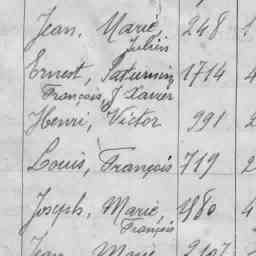 Jean, Marie, 248
Julien
Ernest, Saturnin, 1714 4
François, J Xavier
Henri, Victor 991 2
Louis, François 719 2
Joseph, Marie, 1180 4
François
Jean, Marie